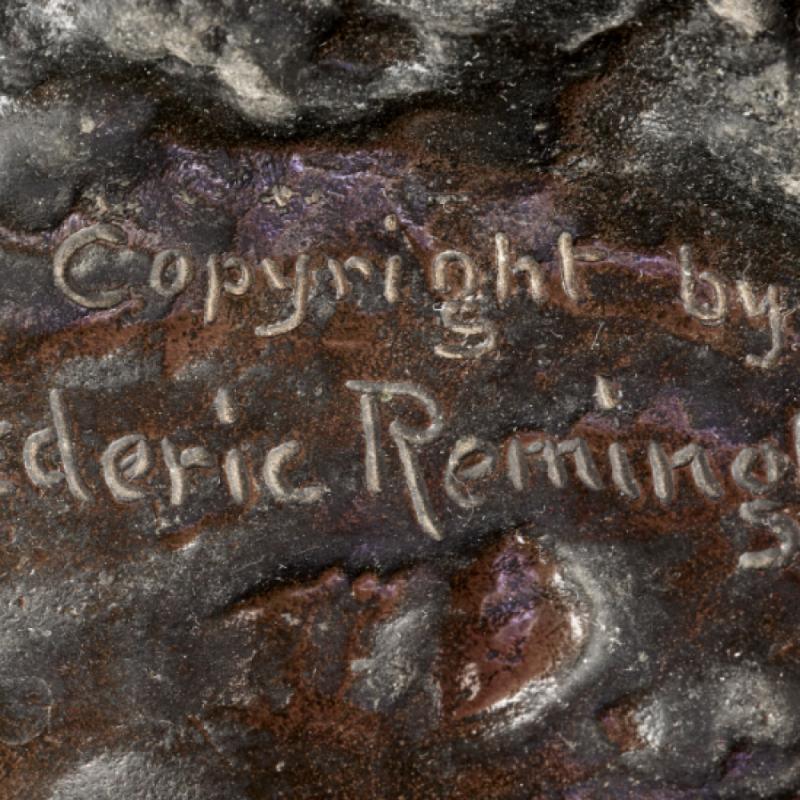 Copyright by
ederic Reming